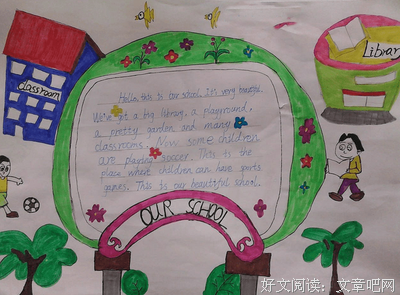 classroom
Library
Hello, this is our school. I'm very beautiful.
We've got a big library, a playground,
a pretty garden and many
classrooms. Now some children
are playing soccer. This is the
place where children can have sports
games. This is our beautiful school.
OUR SCHOOL
好文阅读：文章吧网